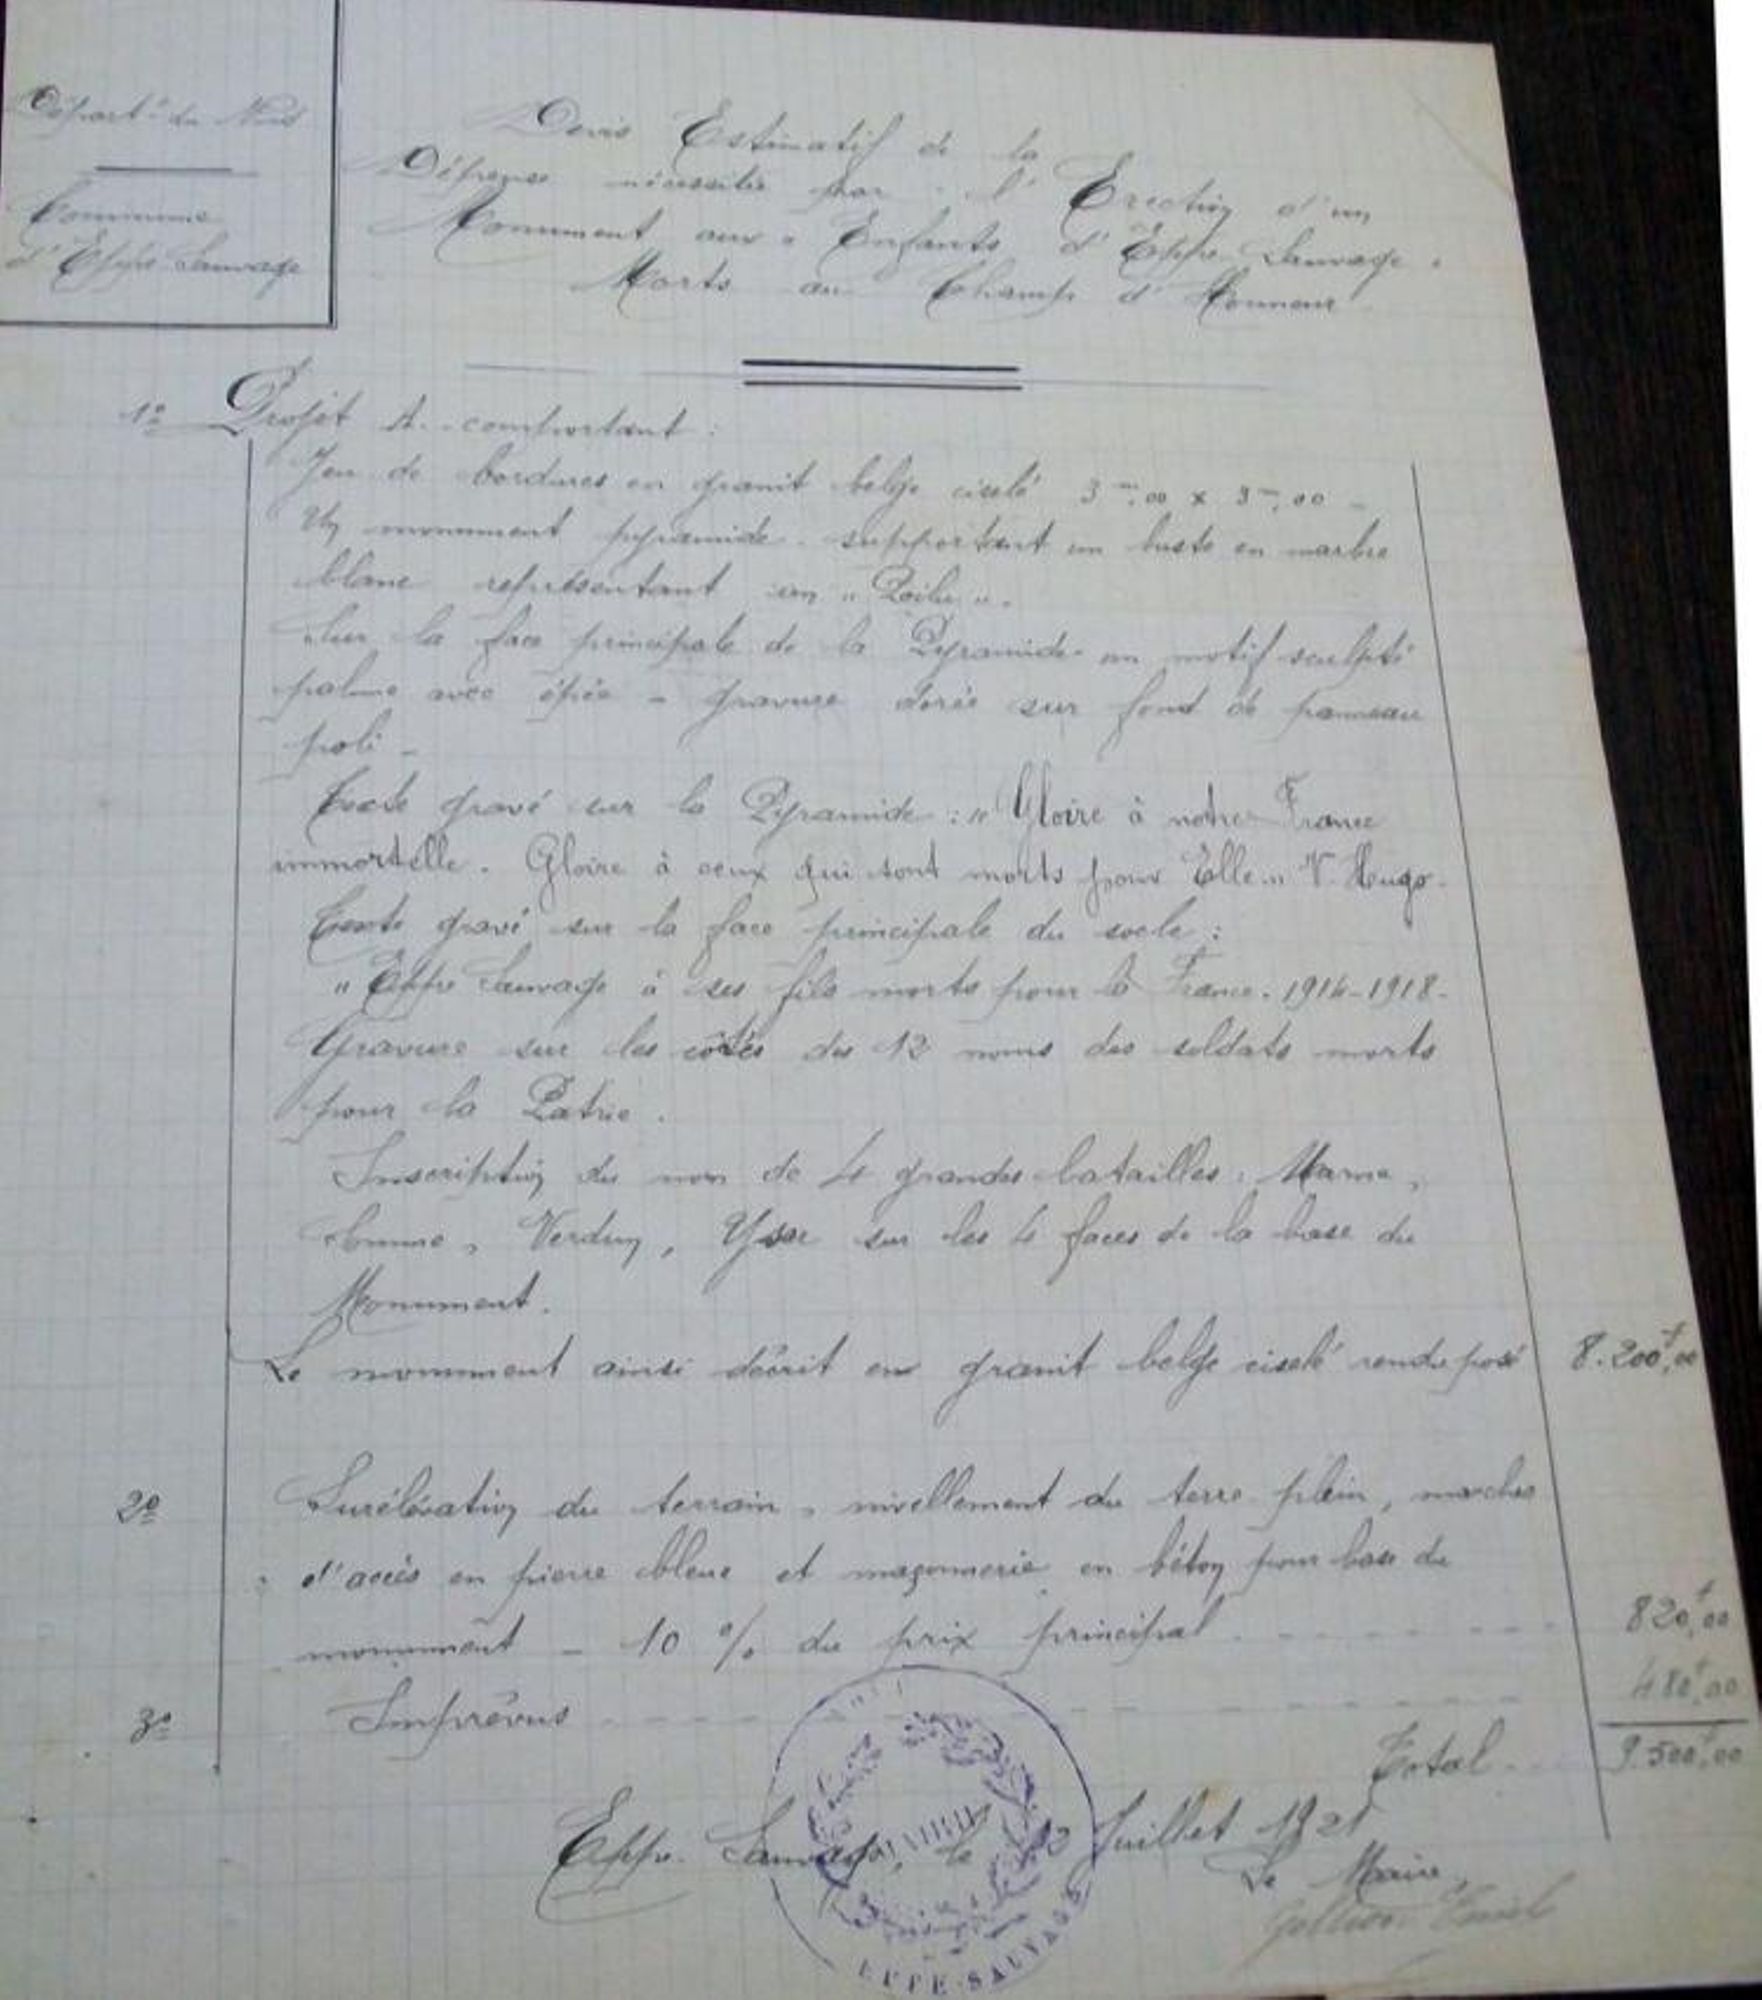 Départ.t du Nord
Commune
d'Eppe Sauvage
Devis Estimatif de la
Dépense nécessitée par l'Erection d'un
Monument aux " Enfants d'Eppe Sauvage "
Morts au Champ d'Honneur
1º Projet A. comportant :
Jeu de bordures en granit belge ciselé 3m,00 x 3m,00 -
Un monument pyramide supportant un buste en marbre
blanc représentant un " Poilu ".
Sur la face principale de la Pyramide un motif sculpté
palme avec épée - gravure dorée sur fond de panneau
poli -
Texte gravé sur la Pyramide : " Gloire à notre France
immortelle. Gloire à ceux qui sont morts pour Elle " V. Hugo.
Texte gravé sur la face principale du socle :
" Eppe Sauvage à ses fils morts pour la France. 1914-1918-
Gravure sur les côtés des 12 noms des soldats morts
pour la Patrie.
Inscription du nom de 4 grandes batailles : Marne,
Somme, Verdun, Yser sur les 4 faces de la base du
Monument.
Le monument ainsi décrit en granit belge ciselé rendu posé 8.200f,00
2º Surélévation du terrain, nivellement du terre plein, marches
d'accès en pierre bleue et maçonnerie en béton pour base du
monument - 10 % du prix principal 820f,00
3º Imprévus 480f,00
Total 9.500f,00
Eppe Sauvage, le 12 Juillet 1921
Le Maire,
MAIRIE
EPPE-SAUVAGE